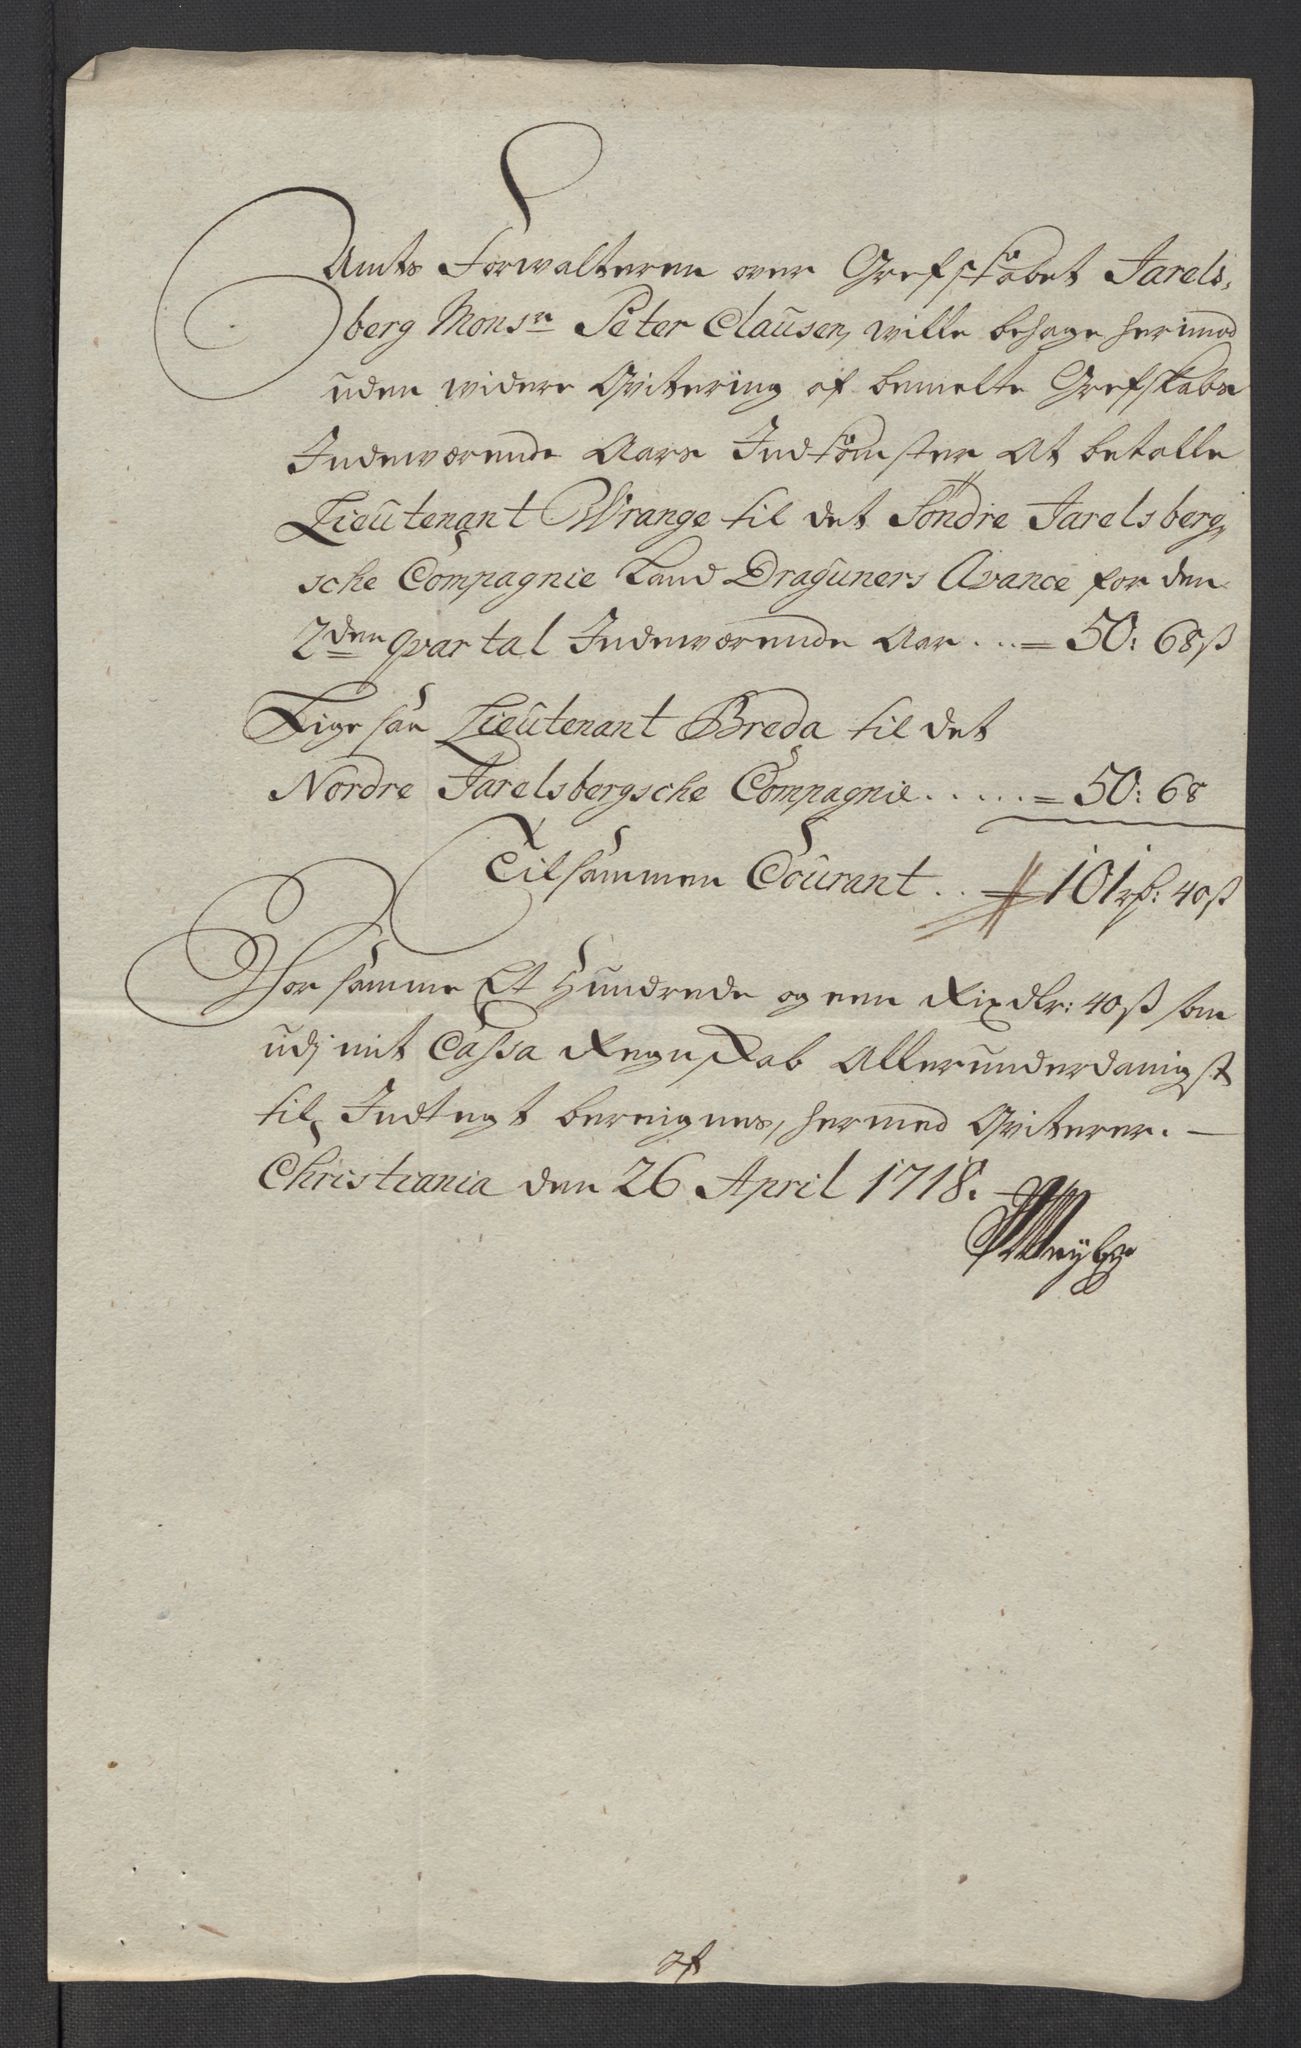 Amts Forwalteren over Grefskabet Jarels,
berg Monsr Peter Clausen, wille behage herimod
uden widere Qvitering af bemelte Grefskabs
Indeværende Aars Indkomster At betalle
Lieutenant Wrange til det Söndre Jarelsberg,
sche Compagnie Land Draguners Avance for den
2den qvartal Indeværende Aar . . . = 50: 68 ß
Lige saa Lieutenant Breda til det
Nordre Jarelsbergsche Compagnie . . . . . = 50: 68
Tilsammen Courant . . 101 rd: 40 ß
For samme Et Hundrede og een Rixdlr: 40 ß som
udj mit Cassa Regnskab Allerunderdanigst
til Indtegt bereignes, hermed Qviterer. —
Christiania den 26 April 1718.